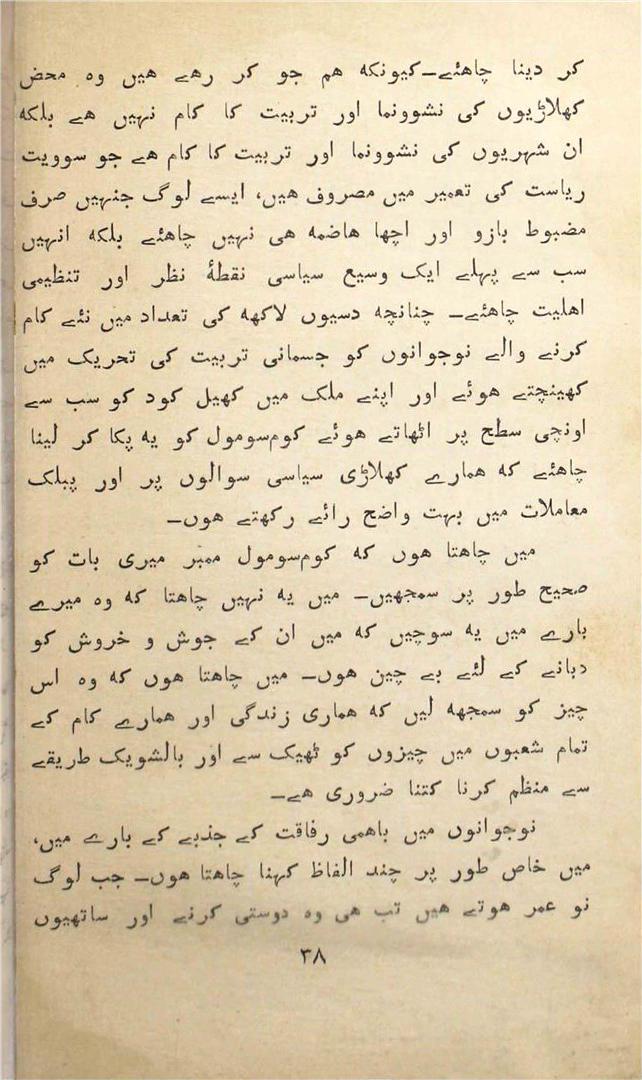 کر دینا چاھئے۔ کیونکه ھم جو کر رھے ھیں وہ محض
کھلاڑیوں کی نشوونما اور تربیت کا کام نہیں ھے بلکه
ان شہریوں کی نشوونما اور تربیت کا کام ھے جو سوویت
ریاست کی تعمیر میں مصروف ھیں، ایسے لوگ جنہیں صرف
مضبوط بازو اور اچھا ھاضمه ھی نہیں چاھئے بلکه انہیں
سب سے پہلے ایک وسیع سیاسی نقطۂ نظر اور تنظیمی
اھلیت چاھئے۔ چنانچه دسیوں لاکھ کی تعداد میں نئے کام
کرنے والے نوجوانوں کو جسمانی تربیت کی تحریک میں
کھینچتے ھوئے اور اپنے ملک میں کھیل کود کو سب سے
اونچی سطح پر اٹھاتے ھوئے کومسومول کو یه پکا کر لینا
چاھئے که ھمارے کھلاڑی سیاسی سوالوں پر اور پبلک
معاملات میں بہت واضح رائے رکھتے ھوں۔
میں چاھتا ھوں که کومسومول ممبر میری بات کو
صحیح طور پر سمجھیں۔ میں یه نہیں چاھتا که وہ میرے
بارے میں یه سوچیں که میں ان کے جوش و خروش کو
دبانے کے لئے بے چین ھوں۔ میں چاھتا ھوں که وہ اس
چیز کو سمجھ لیں که ھماری زندگی اور ھمارے کام کے
تمام شعبوں میں چیزوں کو ٹھیک سے اور بالشویک طریقے
سے منظم کرنا کتنا ضروری ھے۔
نوجوانوں میں باھمی رفاقت کے جذبے کے بارے میں،
میں خاص طور پر چند الفاظ کہنا چاھتا ھوں۔ جب لوگ
نو عمر ھوتے ھیں تب ھی وہ دوستی کرنے اور ساتھیوں
۳۸